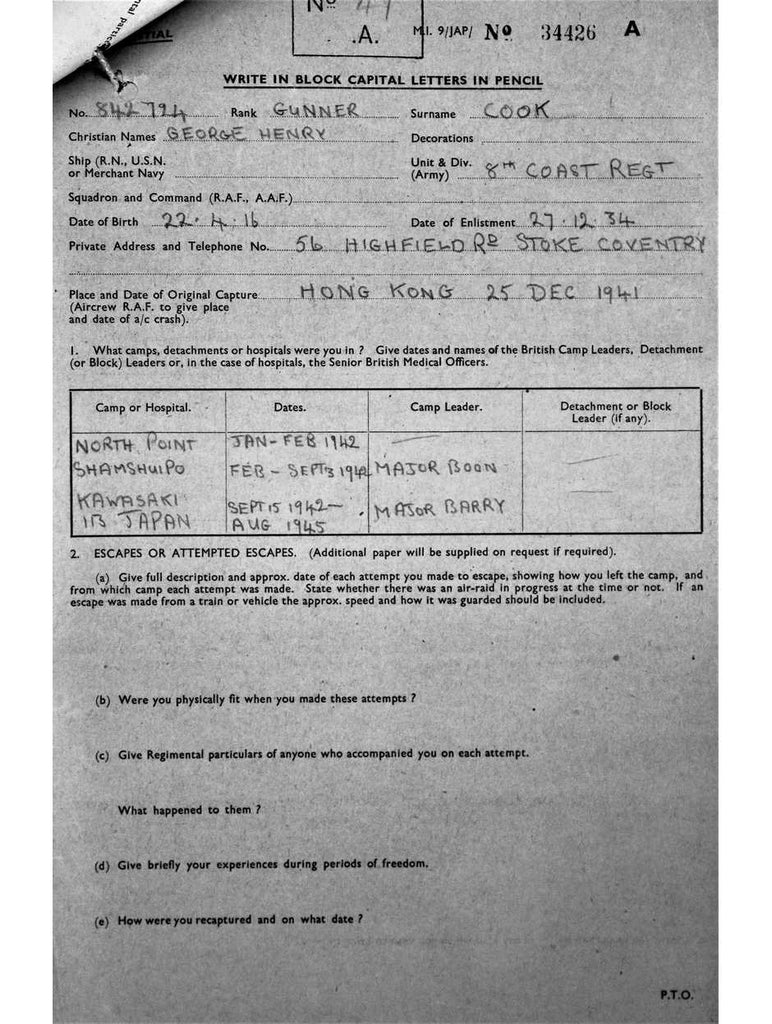 ntal partic
TIAL
No 47
.A.
M.I. 9/JAP/ No 34426 A
WRITE IN BLOCK CAPITAL LETTERS IN PENCIL
No. 842794 Rank GUNNER Surname COOK
Christian Names GEORGE HENRY Decorations
Ship (R.N., U.S.N. or Merchant Navy Unit & Div. (Army) 8TH COAST REGT
Squadron and Command (R.A.F., A.A.F.)
Date of Birth 22.4.16 Date of Enlistment 27.12.34
Private Address and Telephone No. 56 HIGHFIELD RD STOKE COVENTRY
Place and Date of Original Capture HONG KONG 25 DEC 1941
(Aircrew R.A.F. to give place
and date of a/c crash).
1. What camps, detachments or hospitals were you in ? Give dates and names of the British Camp Leaders, Detachment
(or Block) Leaders or, in the case of hospitals, the Senior British Medical Officers.
Camp or Hospital. Dates. Camp Leader. Detachment or Block Leader (if any).
NORTH POINT JAN-FEB 1942
SHAMSHUIPO FEB - SEPT 3 1942 MAJOR BOON
KAWASAKI 1B JAPAN SEPT 15 1942- AUG 1945 MAJOR BARRY
2. ESCAPES OR ATTEMPTED ESCAPES. (Additional paper will be supplied on request if required).
(a) Give full description and approx. date of each attempt you made to escape, showing how you left the camp, and
from which camp each attempt was made. State whether there was an air-raid in progress at the time or not. If an
escape was made from a train or vehicle the approx. speed and how it was guarded should be included.
(b) Were you physically fit when you made these attempts ?
(c) Give Regimental particulars of anyone who accompanied you on each attempt.
What happened to them ?
(d) Give briefly your experiences during periods of freedom.
(e) How were you recaptured and on what date ?
P.T.O.